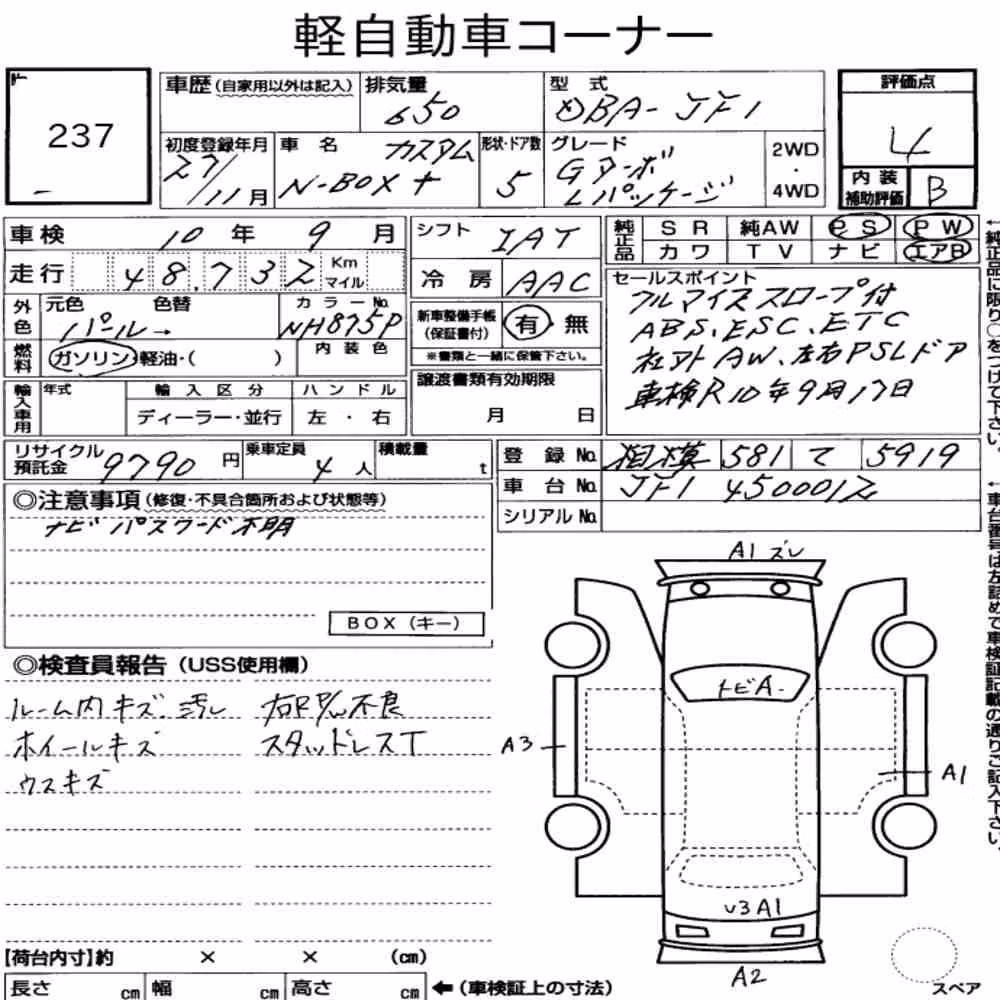 軽自動車コーナー
237
車歴(自家用以外は記入)
排気量
650
型式
DBA-JF1
評価点
4
内装補助評価 B
初度登録年月
27/11月
車名
カスタム
N-BOX+
形状・ドア数
5
グレード
Gターボ
Lパッケージ
2WD
・
4WD
車検 10年 9月
走行 48,732 Km マイル
外色 元色 色替 カラーNo.
パール→ NH875P
燃料 ガソリン・軽油・( ) 内装色
輸入車用 年式 輸入区分 ハンドル
ディーラー・並行 左・右
シフト IAT
冷房 AAC
新車整備手帳(保証書付) 有・無
※書類と一緒に保管下さい。
譲渡書類有効期限
月 日
純正品 SR 純AW PS PW
カワ TV ナビ エアB
セールスポイント
フルマイズスロープ付
ABS、ESC、ETC
社外AW、左右PSLドア
車検R10年9月17日
←純正品に限り○をつけて下さい。
リサイクル預託金 9790円
乗車定員 4人
積載量 t
登録No. 相模 581 て 5919
車台No. JF1 4500012
シリアルNo.
←車台番号は左詰めで車検証記載の通りご記入下さい。
◎注意事項(修復・不具合箇所および状態等)
ナビパスワード不明
BOX(キー)
◎検査員報告(USS使用欄)
ルーム内キズ、汚レ
ホイールキズ
ウスキズ
スタッドレスT
A1ズレ
トビA
A3
A1
U3A1
A2
スペア
【荷台内寸】約 × × (cm)
長さ cm 幅 cm 高さ cm ←(車検証上の寸法)